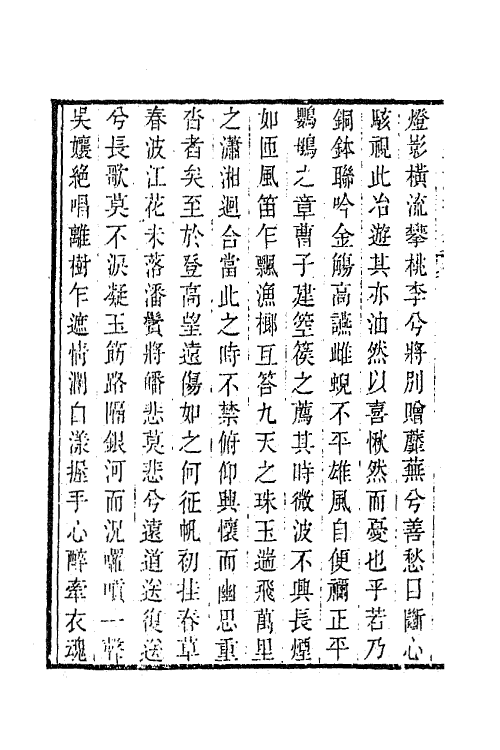 燈影橫流攀桃李兮將別贈蘼蕪兮善愁日斷心
駭視此冶遊其亦油然以喜愀然而憂也乎若乃
銅鉢聯吟金觴高讌雌蜺不平雄風自便禰正平
鸚鵡之章曹子建箜篌之薦其時微波不興長煙
如匝風笛乍飄漁榔互答九天之珠玉遄飛萬里
之瀟湘迴合當此之時不禁俯仰興懷而幽思重
沓者矣至於登高望遠傷如之何征帆初挂春草
春波江花未落潘鬢將皤悲莫悲兮遠道送復送
兮長歌莫不淚凝玉筯路隔銀河而況囉嗊一聲
吳孃絶唱離樹乍遮情瀾白漾握手心醉牽衣魂